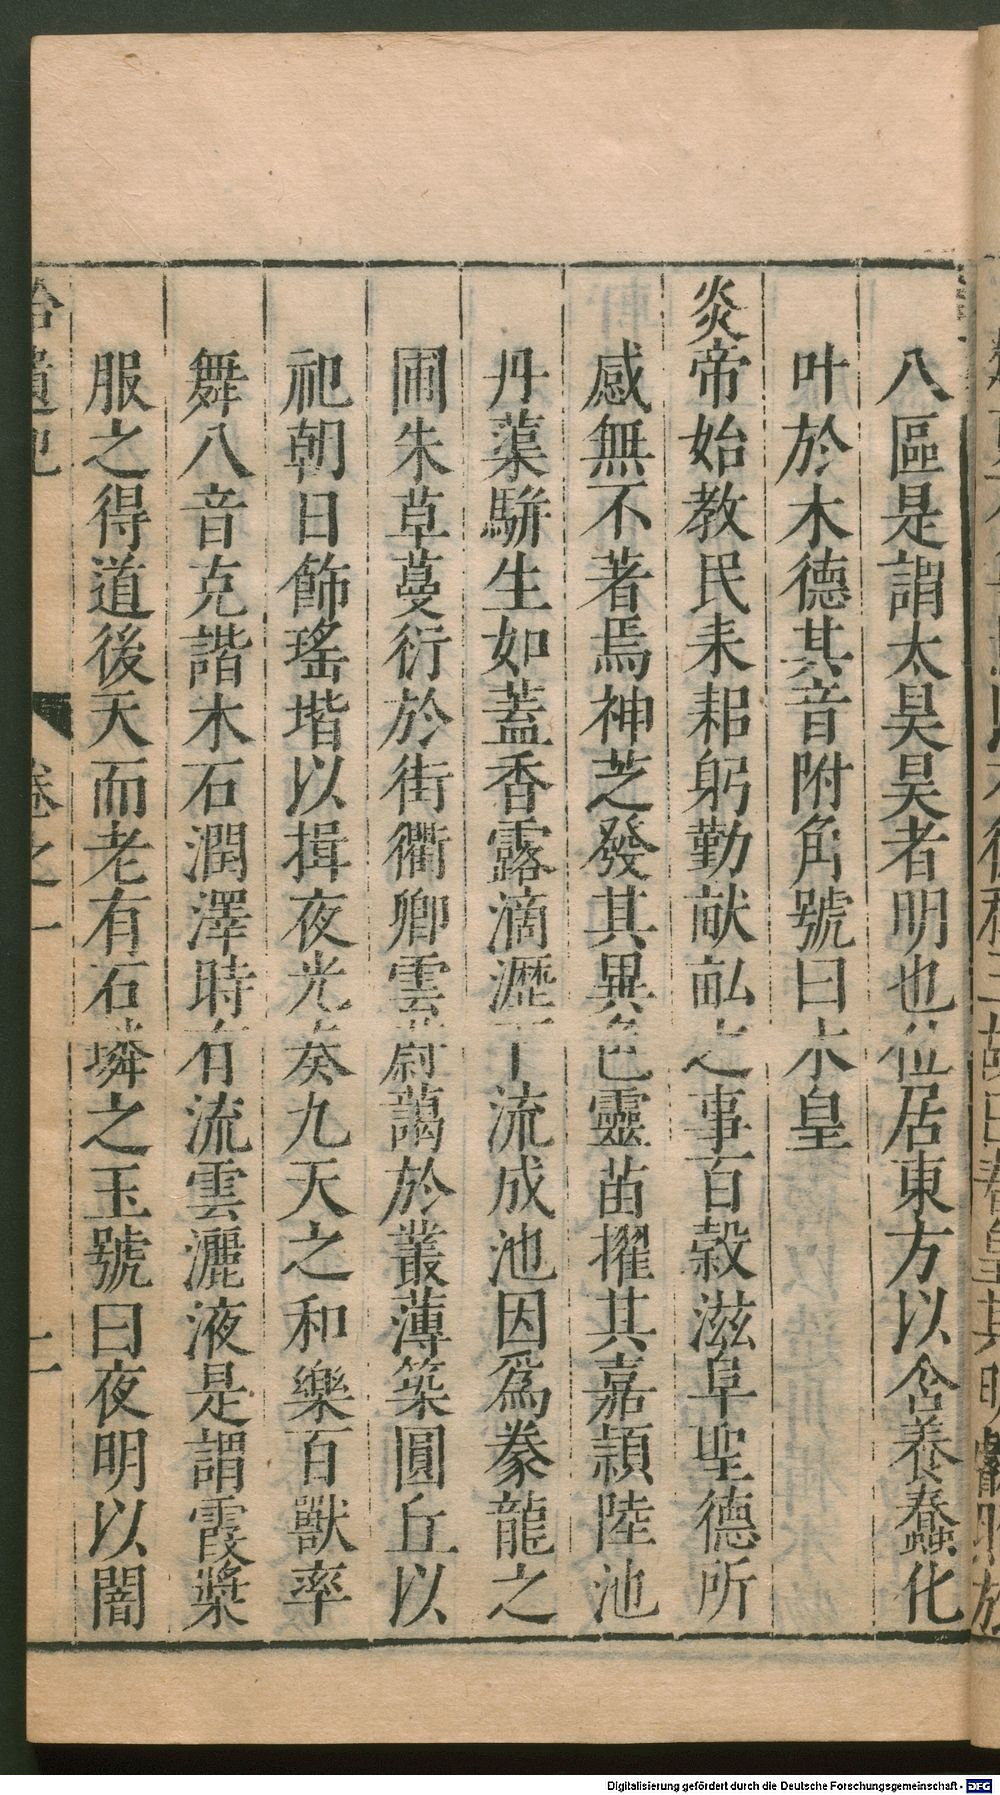 八區是謂太昊昊者明也位居東方以含養蠢化
叶於木德其音附角號曰木皇
炎帝始教民耒耜躬勤畎畝之事百穀滋阜聖德所
感無不著焉神芝發其異色靈苗擢其嘉穎陸池
丹蕖駢生如蓋香露滴瀝下流成池因爲豢龍之
圃朱草蔓衍於街衢卿雲蔚藹於叢薄築圓丘以
祀朝日飾瑤堦以揖夜光奏九天之和樂百獸率
舞八音克諧木石潤澤時有流雲灑液是謂霞漿
服之得道後天而老有石璘之玉號曰夜明以闇
拾遺記 卷之一 二
Digitalisierung gefördert durch die Deutsche Forschungsgemeinschaft - DFG